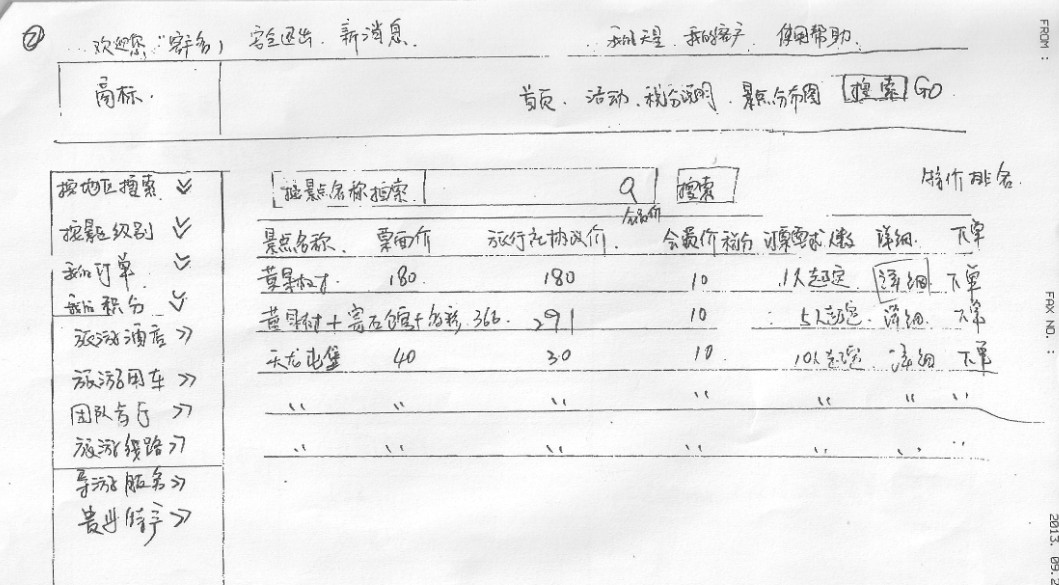 ②
欢迎您，"客户名） 安全退出、新消息. 我的 使用帮助.
商标. 首页. 活动. 积分说明. 景点分布图 搜索 GO
按地区搜索 按景点名称搜索 Q 搜索 特价排名
按景区级别
我的订单
我的积分
景点名称. 票面价 旅行社协议价. 会员价 积分 订票要求 人数 详细. 下单
黄果树 180. 180 10 1人起定 详细 下单
黄果树+ 366. 291 10 5人起定 详细. 下单
天龙屯堡 40 30 10. 10人起定 详细 下单
〃 〃 〃 〃 〃 〃 〃
〃 〃 〃 〃 〃 〃 〃
旅游酒店 >>
旅游用车 >>
团队
旅游线路 >>
导游服务 >>
特产 >>
FROM :
FAX NO. :
2013. 09.